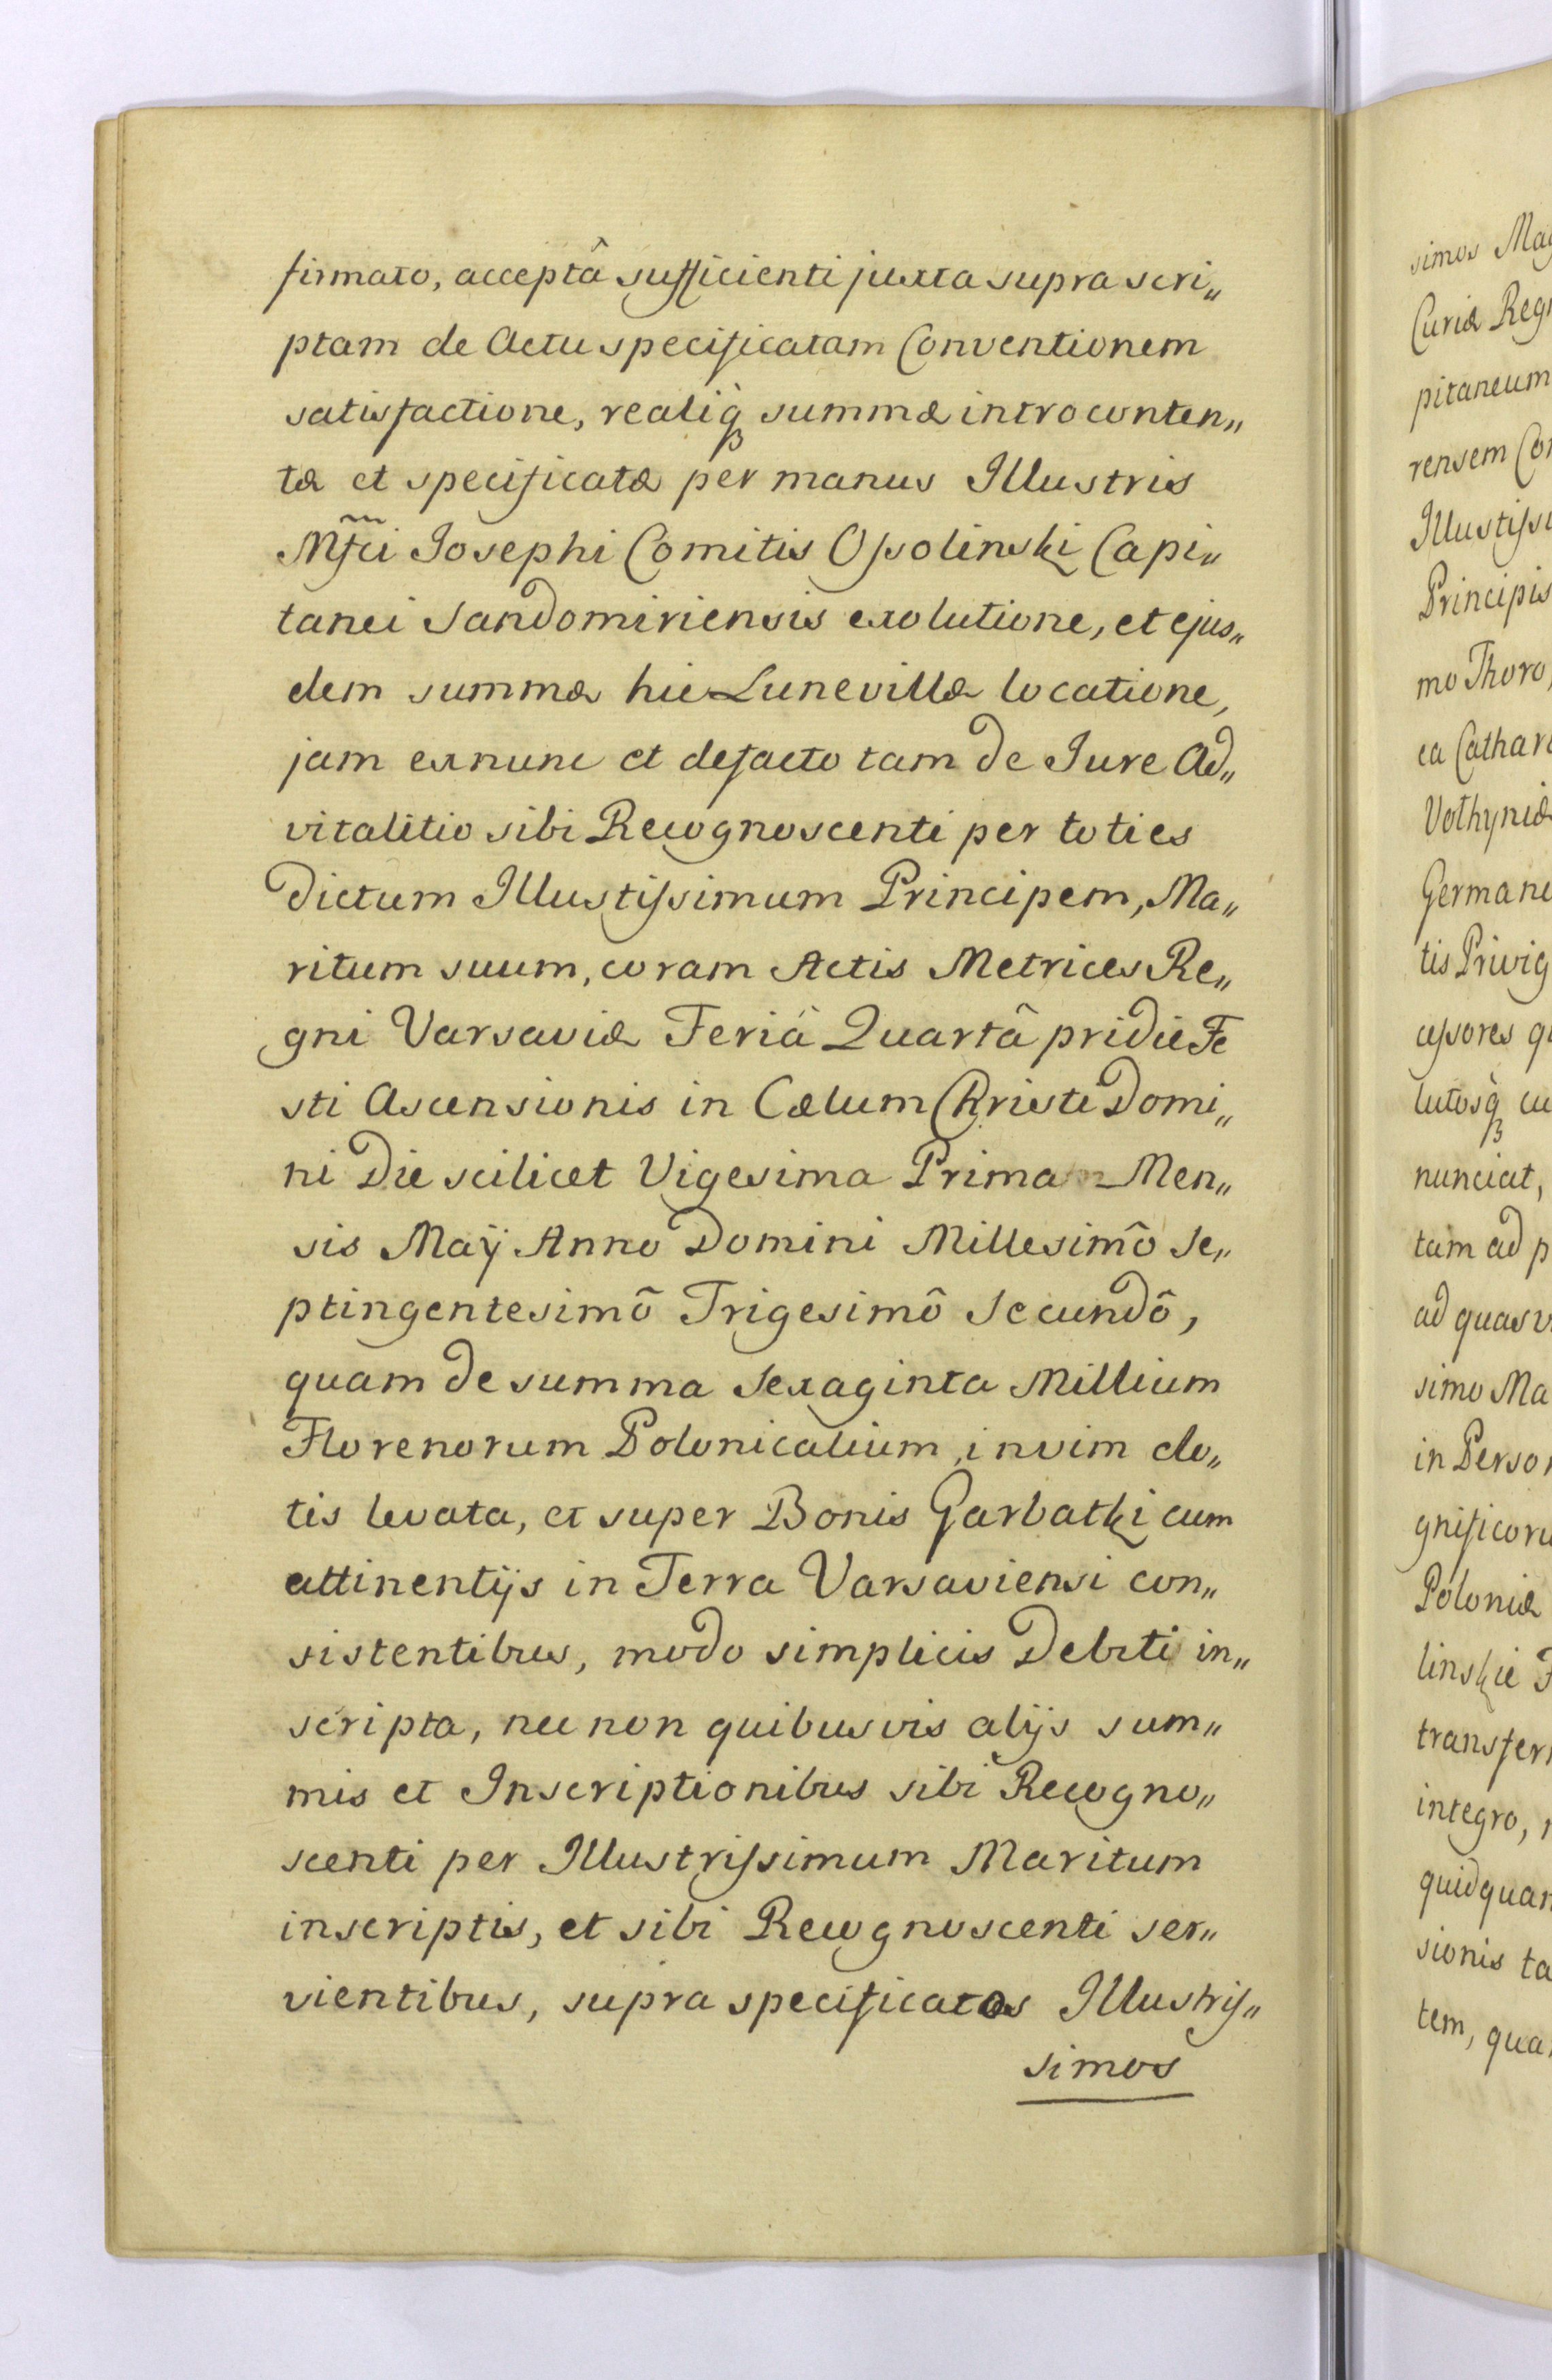 firmato, acceptâ sufficienti juxta supra scri„
ptam de Actu specificatam Conventionem
satisfactione, realiq̀ꝫ summæ introconten„
tæ et specificatæ per manus Illustris
Mf̃ci Josephi Comitis Ossolinski Capi„
tanei Sandomiriensis exolutione, et ejus„
dem summæ hic Lunevillæ locatione,
jam exnunc et defacto tam de Jure Ad„
vitalitio sibi Recognoscenti per toties
dictum Illustissimum Principem, Ma„
ritum suum, coram Actis Metrices Re„
gni Varsaviæ Feriâ Quartâ pridie Fe
sti Ascensionis in Cælum Christi Domi„
ni Die scilicet Vigesima Prima Men„
sis Maÿ Anno Domini Millesimô Se„
ptingentesimô Trigesimô Secundô,
quam de summa Sexaginta Millium
Florenorum Polonicalium, in vim do„
tis levata, et super Bonis Garbatki cum
attinentijs in Terra Varsaviensi con„
sistentibus, modo simplicis Debiti in„
scripta, nec non quibusvis alijs sum„
mis et Inscriptionibus sibi Recogno„
scenti per Illustrissimum Maritum
inscriptis, et sibi Recognoscenti ser„
vientibus, supra specificatos Illustris„
simos
simos Mag
Curiæ Regn
pitaneum
rensem Con
Illustissi
Principis
mo Thoro,
ea Cathar
Volhyniæ
Germani
tis Privig
cessores q
lutosq̀ꝫ cu
nunciat,
tam ad p
ad quasv
simo Ma
in Person
gnificoru
Poloniæ
linskie F
transfer
integro,
quidquam
sionis ta
tem, qua